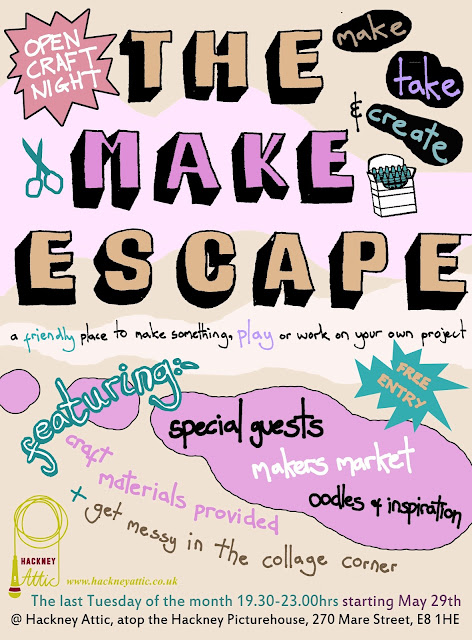 OPEN
CRAFT
NIGHT
THE
make
take
&
create
MAKE
ESCAPE
a friendly place to make something, play or work on your own project
featuring:-
FREE
ENTRY
special guests
makers market
oodles of inspiration
craft
materials provided
+ get messy in the collage corner
HACKNEY
Attic
www.hackneyattic.co.uk
The last Tuesday of the month 19.30-23.00hrs starting May 29th
@ Hackney Attic, atop the Hackney Picturehouse, 270 Mare Street, E8 1HE